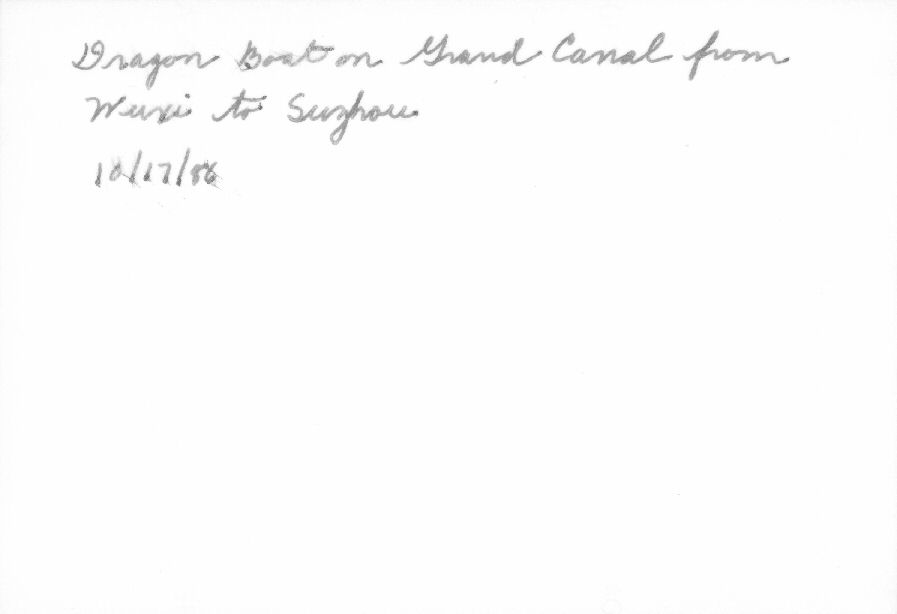 Dragon Boat on Grand Canal from
Wuxi to Suzhou
10/17/88